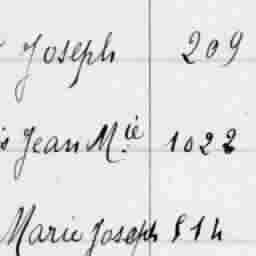 Joseph 209
is Jean M.ie 1022
Marie Joseph 514